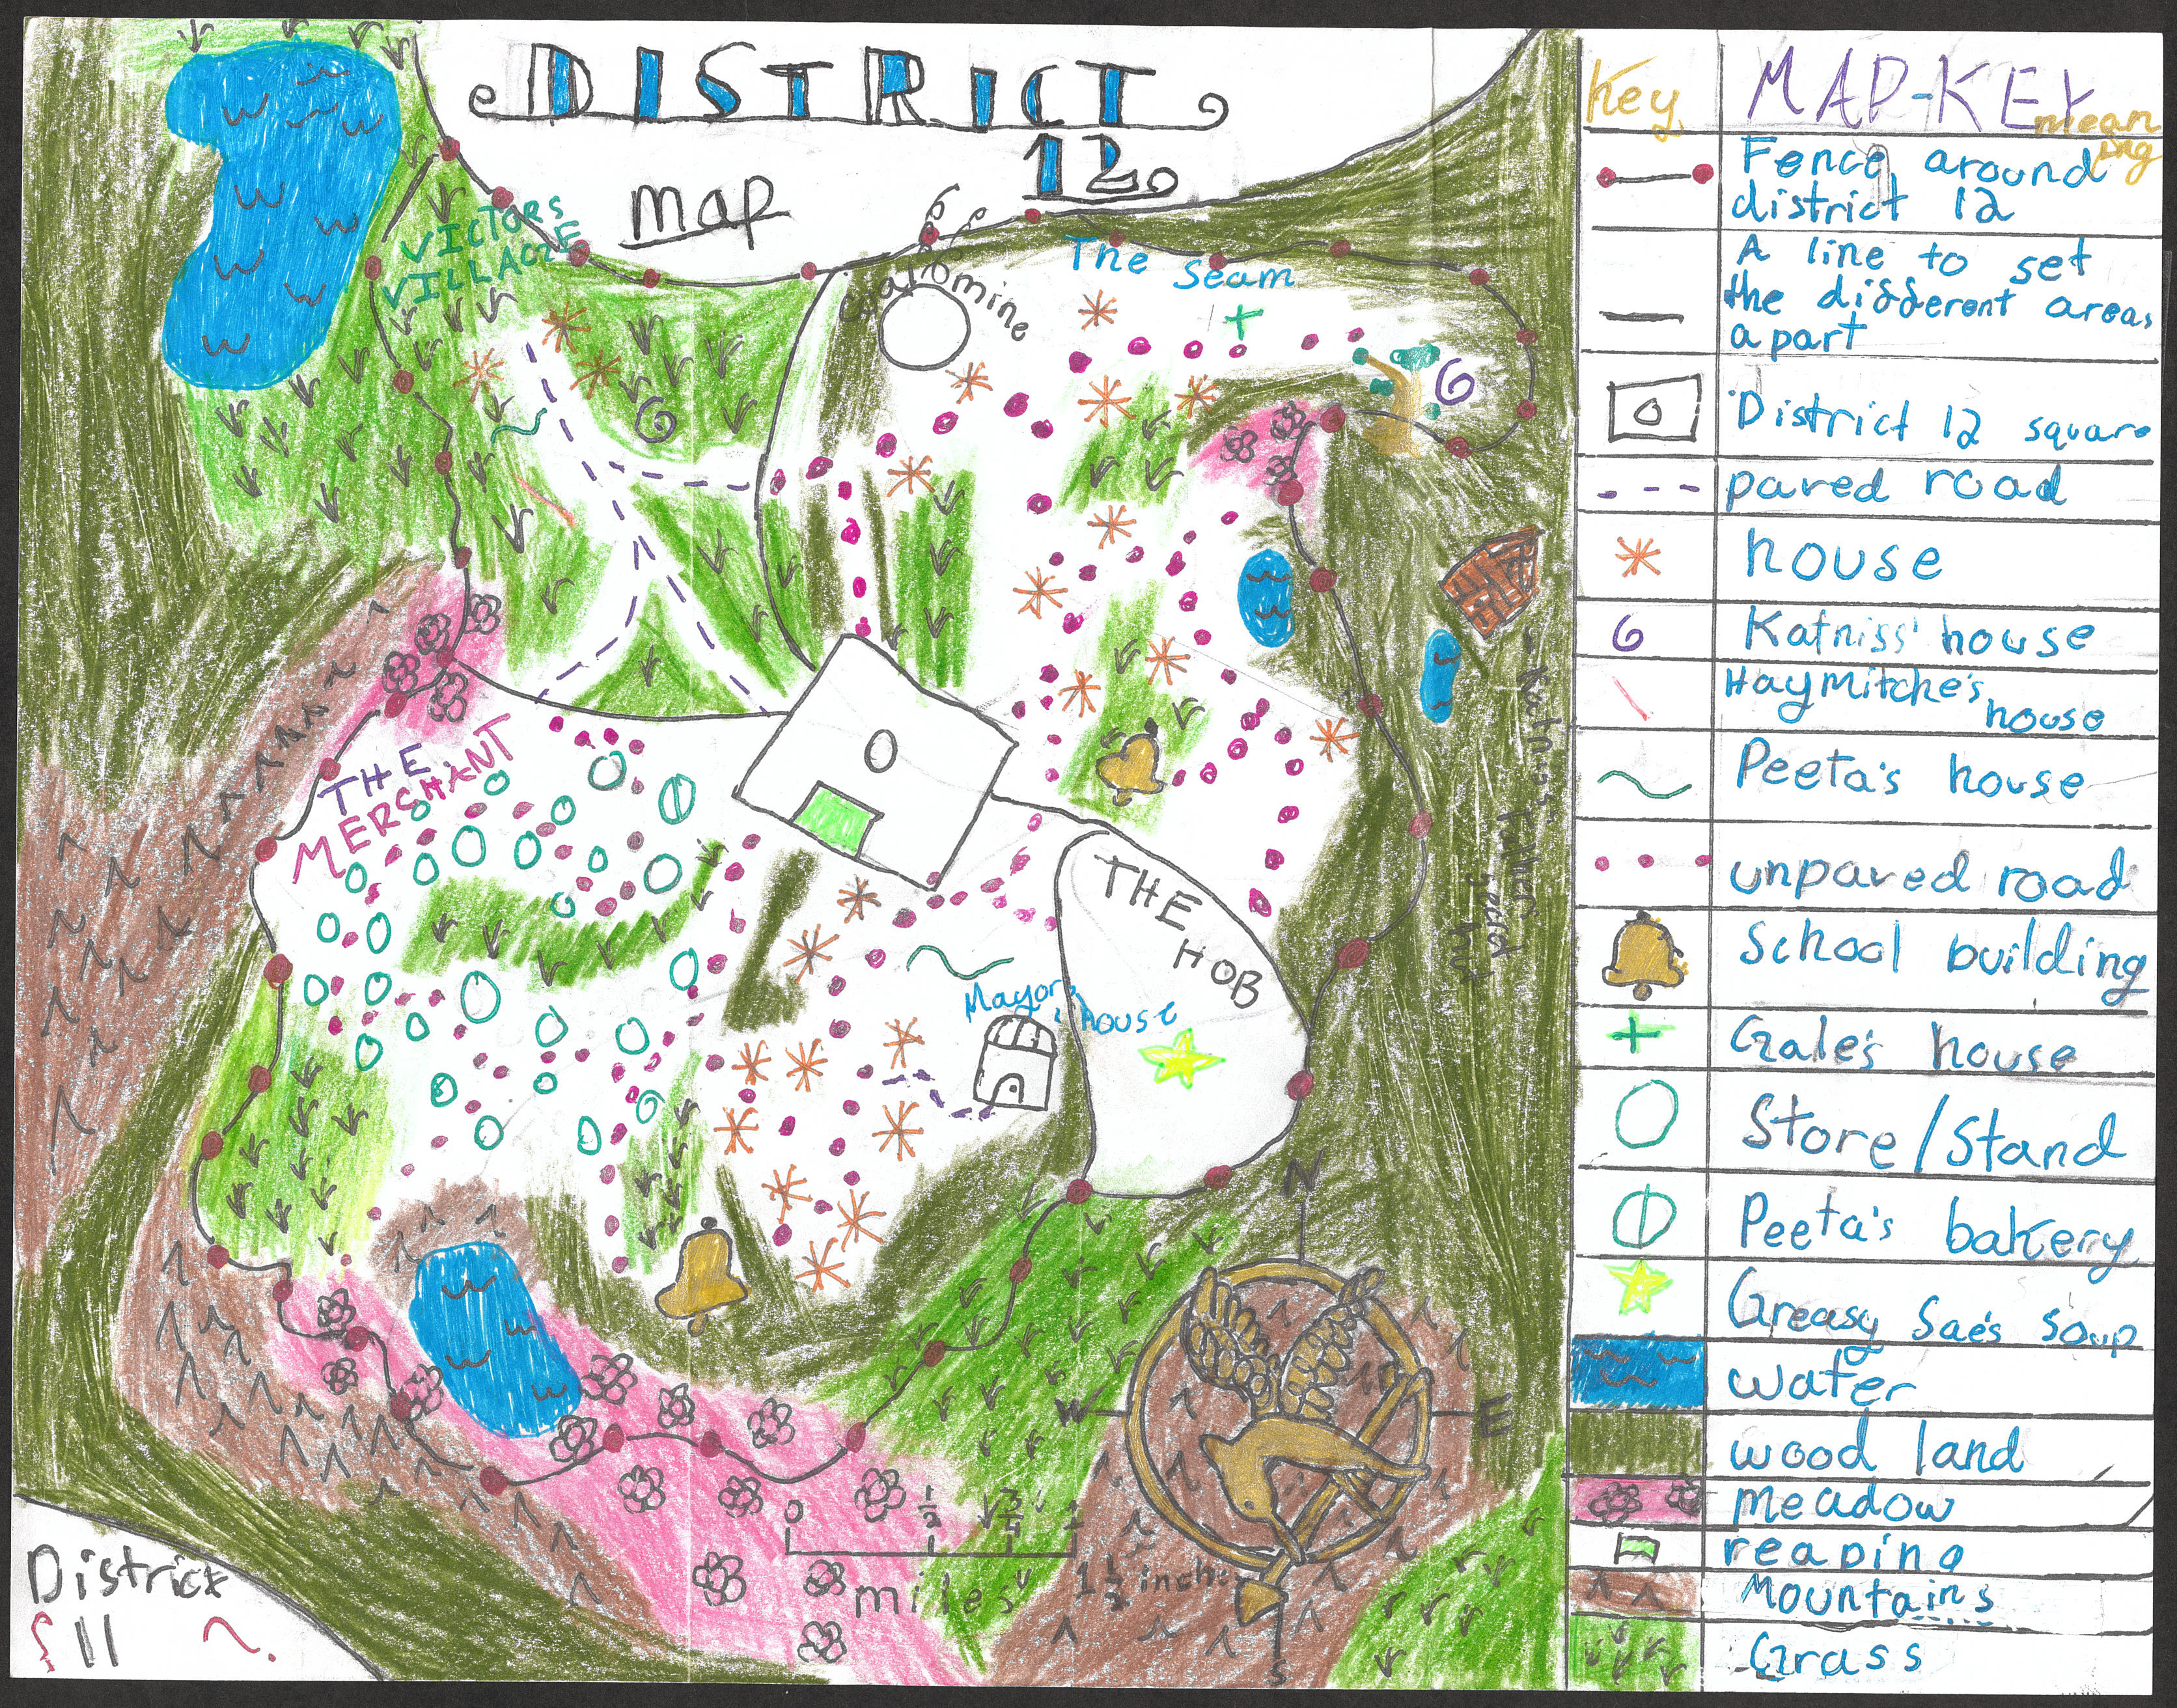 DISTRICT
12
map
VICTORS
VILLAGE
coal mine
The Seam
THE
MERCHANT
THE
HOB
Mayor's
house
Katniss's father's
secret
N
W
E
S
0 1/2
miles
1 1/2 inch
District
11
Key
MAP-KEY
mean
ing
Fence around
district 12
A line to set
the different areas
apart
District 12 square
paved road
house
Katniss' house
HayMitche's
house
Peeta's house
unpaved road
School building
Gale's house
Store/Stand
Peeta's bakery
Greasy Sae's soup
water
wood land
meadow
reaping
Mountains
Grass